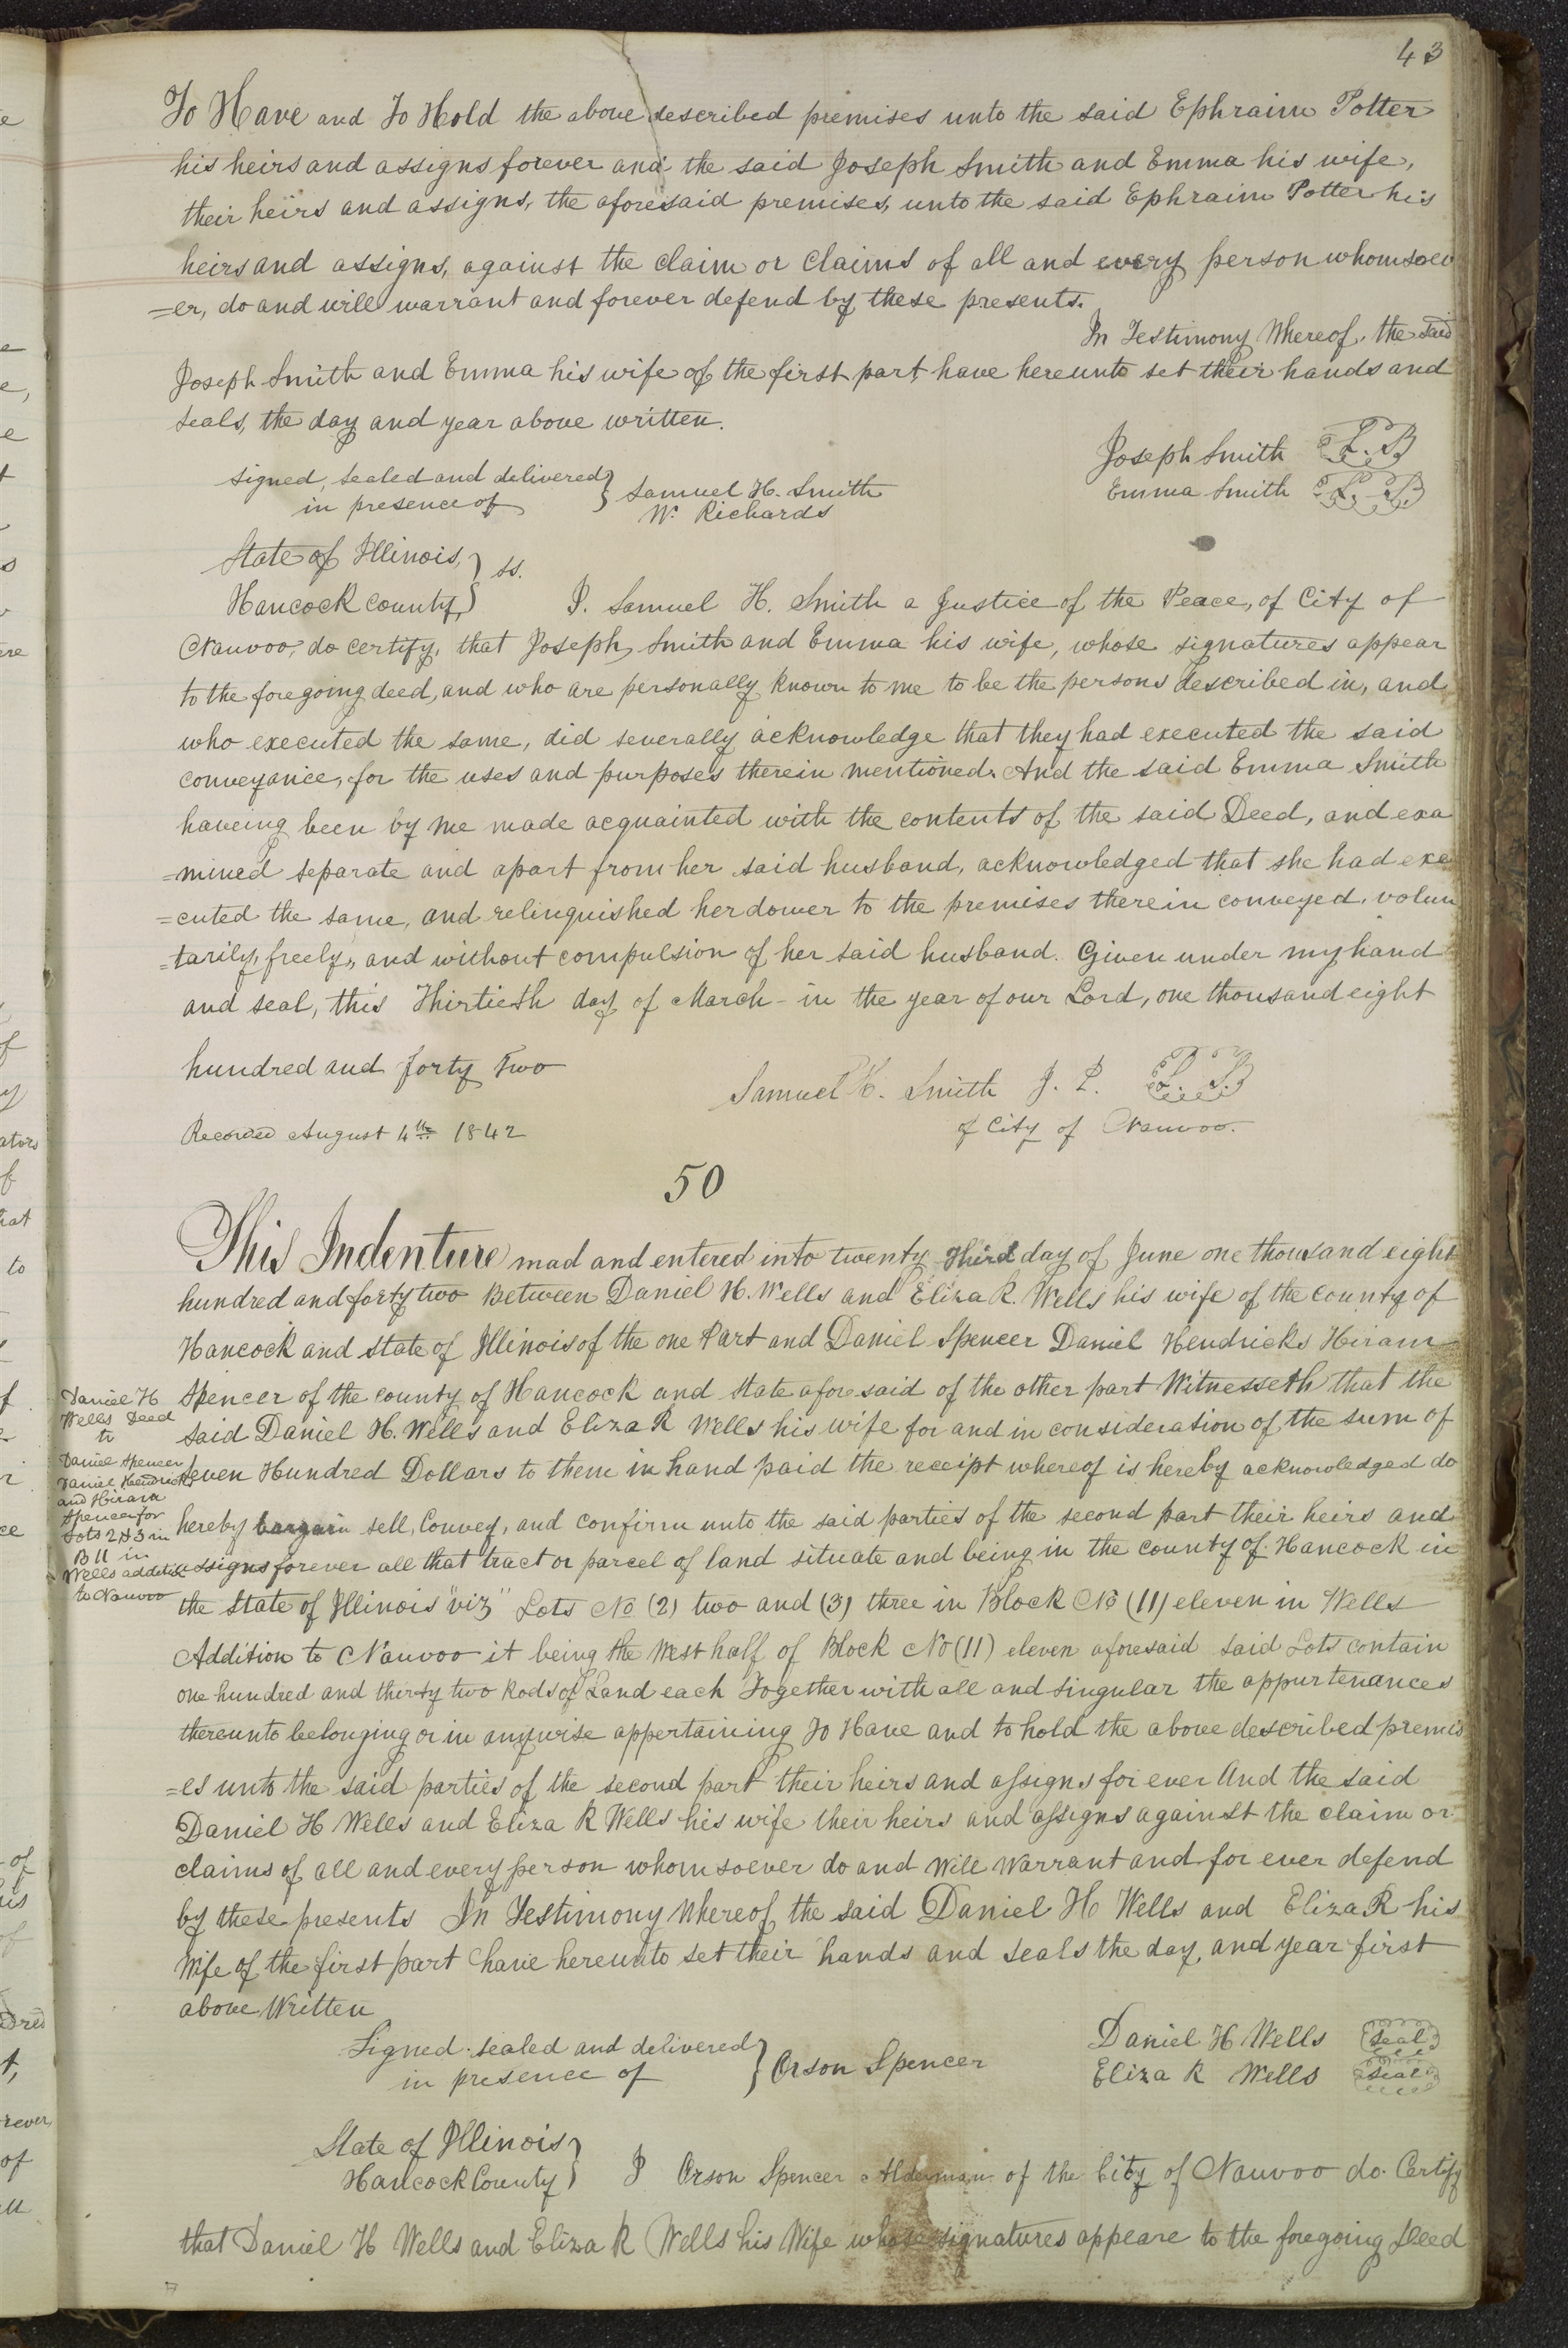 43
To Have and To Hold the above described premises unto the said Ephraim Potter
his heirs and assigns forever and the said Joseph Smith and Emma his wife,
their heirs and assigns, the aforesaid premises, unto the said Ephraim Potter his
heirs and assigns, against the claim or claims of all and every person whomsoev
=er, do and will warrant and forever defend by these presents.
In Testimony Whereof, the said
Joseph Smith and Emma his wife of the first part, have hereunto set their hands and
seals, the day and year above written.
Joseph Smith L. S
Emma Smith L. S
signed, sealed and delivered
in presence of
Samuel H. Smith
W. Richards
State of Illinois,
Hancock county, } ss.
I. Samuel H. Smith a Justice of the Peace, of City of
Nauvoo, do certify, that Joseph Smith and Emma his wife, whose signatures appear
to the foregoing deed, and who are personally known to me to be the persons described in, and
who executed the same, did severally acknowledge that they had executed the said
conveyance, for the uses and purposes therein mentioned. And the said Emma Smith
haveing been by me made acquainted with the contents of the said Deed, and exa
=mined separate and apart from her said husband, acknowledged that she had exe
=cuted the same, and relinquished her dower to the premises therein conveyed, volun
=tarily, freely, and without compulsion of her said husband. Given under my hand
and seal, this Thirtieth day of March - in the year of our Lord, one thousand eight
hundred and forty Two
Samuel H. Smith J. P. L. S
of City of Nauvoo.
Recorded August 4th 1842
50
This Indenture mad and entered into twenty third day of June one thousand eight
hundred and forty two Between Daniel H. Wells and Eliza R. Wells his wife of the county of
Hancock and state of Illinois of the one Part and Daniel Spencer Daniel Hendricks Hiram
Spencer of the county of Hancock and State aforesaid of the other part Witnesseth that the
said Daniel H. Wells and Eliza R Wells his wife for and in consideration of the sum of
Seven Hundred Dollars to them in hand paid the receipt whereof is hereby acknowledged do
hereby bargain sell, Convey, and confirm unto the said parties of the second part their heirs and
assigns forever all that tract or parcel of land situate and being in the county of Hancock in
the State of Illinois "viz" Lots No (2) two and (3) three in Block No (11) eleven in Wells
Addition to Nauvoo it being the West half of Block No (11) eleven aforesaid said Lots contain
one hundred and thirty two Rods of Land each Together with all and singular the appurtenances
thereunto belonging or in anywise appertaining To Have and to hold the above described premis
=es unto the said parties of the second part their heirs and assigns for ever And the said
Daniel H Wells and Eliza R Wells his wife their heirs and assigns against the claim or
claims of all and every person whomsoever do and will warrant and for ever defend
by these presents In Testimony Whereof the said Daniel H Wells and Eliza R his
Wife of the first part have hereunto set their hands and seals the day, and year first
above Written
Daniel H
Wells Deed
to
Daniel Spencer
Daniel Hendricks
and Hiram
Spencer for
Lots 2 & 3 in
B 11 in
Wells addition
to Nauvoo
Daniel H Wells seal
Eliza R Wells seal
Signed sealed and delivered
in presence of
Orson Spencer
State of Illinois
Hancock County
I Orson Spencer Alderman of the City of Nauvoo do Certify
that Daniel H Wells and Eliza R Wells his Wife whose signatures appeare to the foregoing Deed